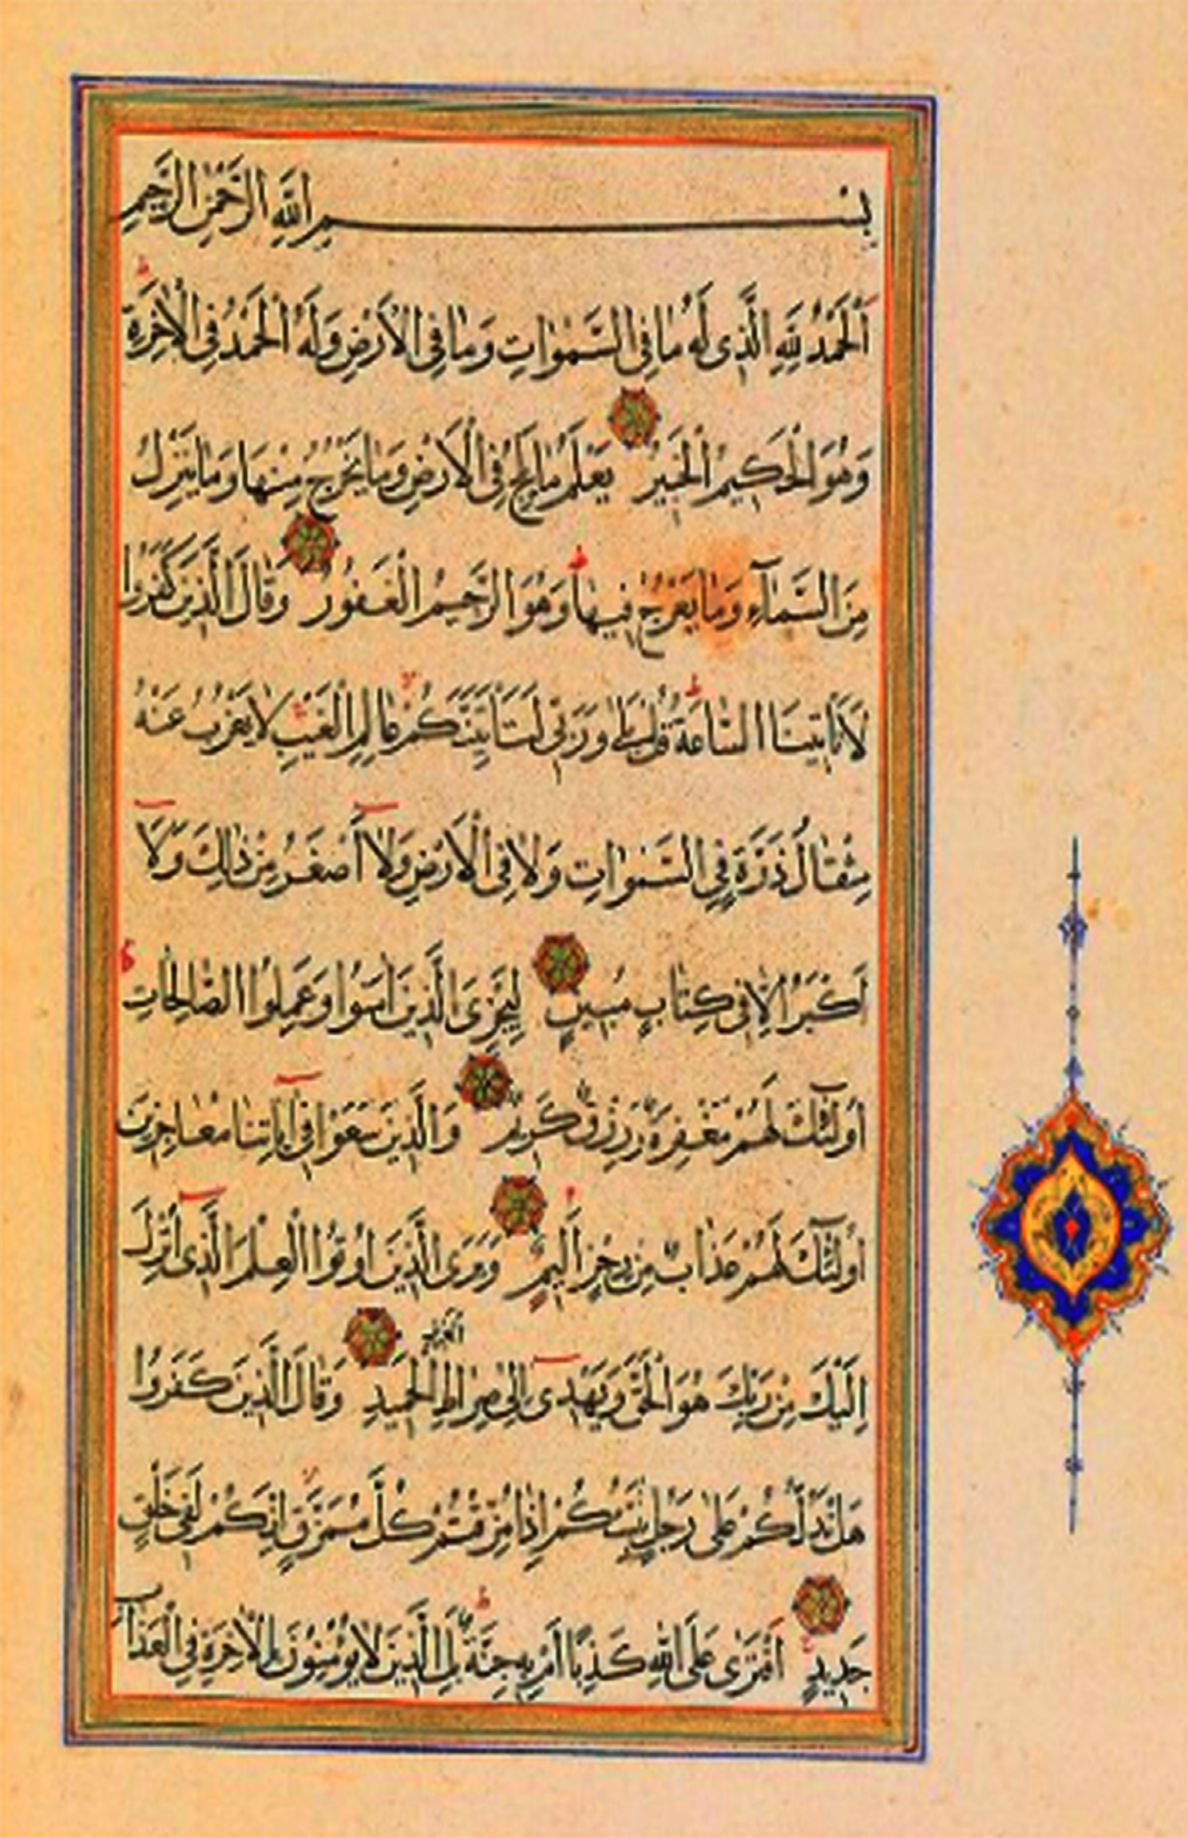 بِسْمِ اللّٰهِ الرَّحْمٰنِ الرَّحِيمِ
اَلْحَمْدُ لِلّٰهِ الَّذِى لَهُ مَا فِى السَّمٰوَاتِ وَمَا فِى الْاَرْضِ وَلَهُ الْحَمْدُ فِى الْاٰخِرَةِ ط
وَهُوَ الْحَكِيمُ الْخَبِيرُ يَعْلَمُ مَا يَلِجُ فِى الْاَرْضِ وَمَا يَخْرُجُ مِنْهَا وَمَا يَنْزِلُ
مِنَ السَّمَآءِ وَمَا يَعْرُجُ فِيهَا ط وَهُوَ الرَّحِيمُ الْغَفُورُ وَقَالَ الَّذِينَ كَفَرُوا
لَا تَاْتِينَا السَّاعَةُ ط قُلْ بَلٰى وَرَبِّى لَتَاْتِيَنَّكُمْ عَالِمِ الْغَيْبِ لَا يَعْزُبُ عَنْهُ
مِثْقَالُ ذَرَّةٍ فِى السَّمٰوَاتِ وَلَا فِى الْاَرْضِ وَلَا اَصْغَرُ مِنْ ذٰلِكَ وَلَا
اَكْبَرُ اِلَّا فِى كِتَابٍ مُبِينٍ لِيَجْزِىَ الَّذِينَ اٰمَنُوا وَعَمِلُوا الصَّالِحَاتِ
اُولٰئِكَ لَهُمْ مَغْفِرَةٌ وَرِزْقٌ كَرِيمٌ وَالَّذِينَ سَعَوْا فِى اٰيَاتِنَا مُعَاجِزِينَ
اُولٰئِكَ لَهُمْ عَذَابٌ مِنْ رِجْزٍ اَلِيمٌ وَيَرَى الَّذِينَ اُوتُوا الْعِلْمَ الَّذِى اُنْزِلَ
اِلَيْكَ مِنْ رَبِّكَ هُوَ الْحَقَّ وَيَهْدِى اِلٰى صِرَاطِ الْعَزِيزِ الْحَمِيدِ وَقَالَ الَّذِينَ كَفَرُوا
هَلْ نَدُلُّكُمْ عَلٰى رَجُلٍ يُنَبِّئُكُمْ اِذَا مُزِّقْتُمْ كُلَّ مُمَزَّقٍ اِنَّكُمْ لَفِى خَلْقٍ
جَدِيدٍ اَفْتَرٰى عَلَى اللّٰهِ كَذِبًا اَمْ بِهِ جِنَّةٌ ط بَلِ الَّذِينَ لَا يُؤْمِنُونَ بِالْاٰخِرَةِ فِى الْعَذَابِ